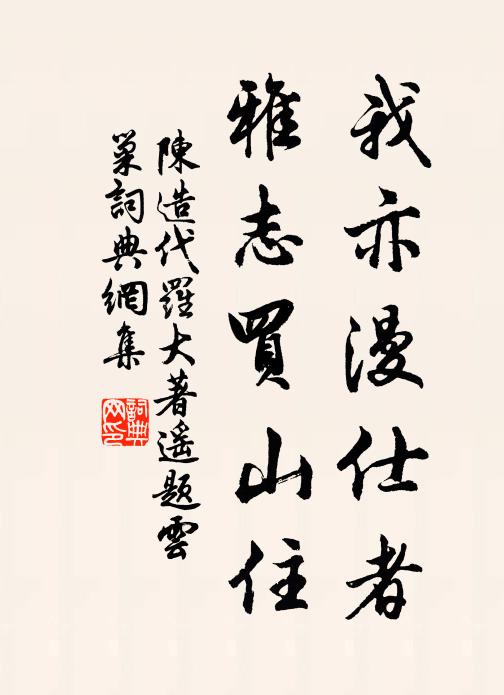 我亦漫仕者
雅志買山住
陳造代羅大著遥題雲
巢詞典網集
詞典
网印